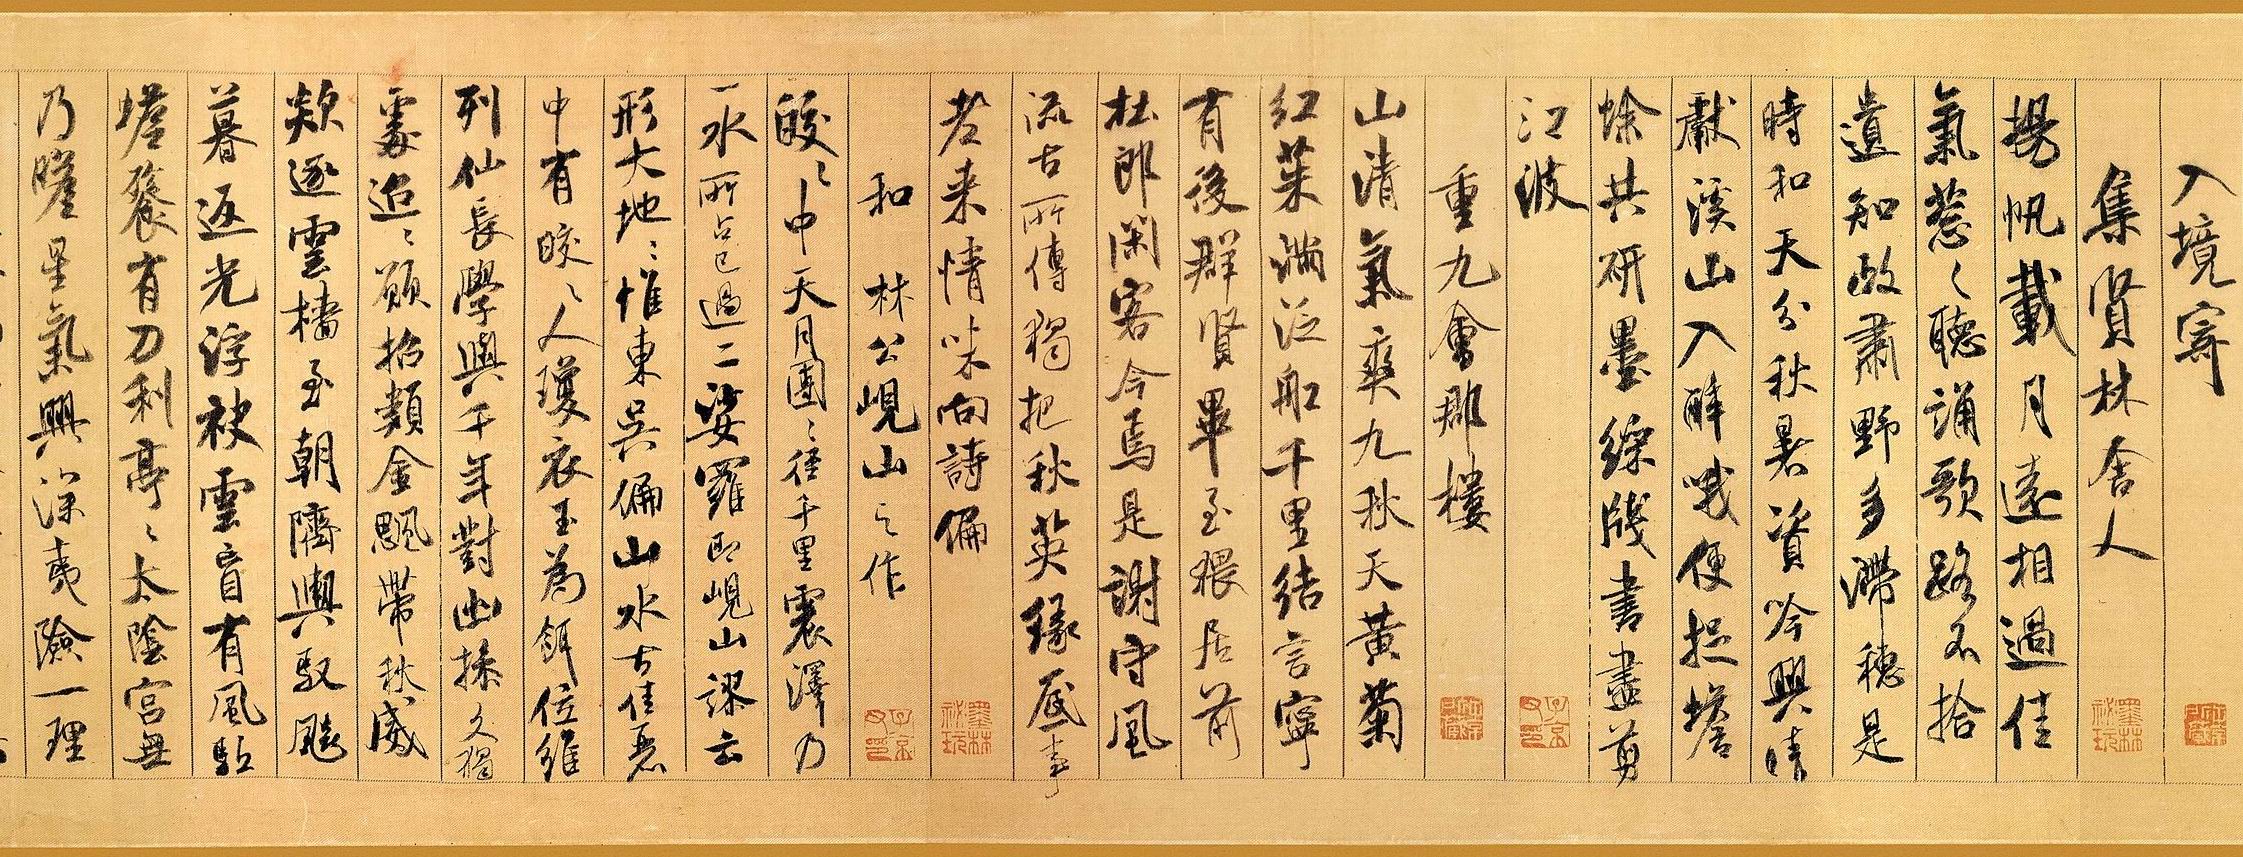 入境寄
集賢林舍人
揚帆載月遠相過佳
氣蔥〻聽誦歌路不拾
遺知政肅野多滯穗是
時和天分秋暑資吟興晴
獻溪山入醉哦便捉蟾
蜍共研墨綵牋書盡剪
江波
重九會郡樓
山清氣爽九秋天黃菊
紅茱滿泛船千里結言寧
有後群賢畢至猥居前
杜郎閑客今焉是謝守風
流古所傳獨把秋英緣底事
老來情味向詩偏
和 林公峴山之作
皎〻中天月團〻徑千里震澤乃
一水所占已過二娑羅即峴山謬云
形大地〻惟東吳偏山水古佳麗
中有皎〻人瓊衣玉為餌位維
列仙長學與千年對幽操久獨
處迢〻願招類金颸帶秋威
欻逐雲檣至朝隮輿馭飈
暮返光浮袂雲盲有風馭
蟾餮有刀利亭〻太陰宮無
乃瞻星氣興深夷險一理